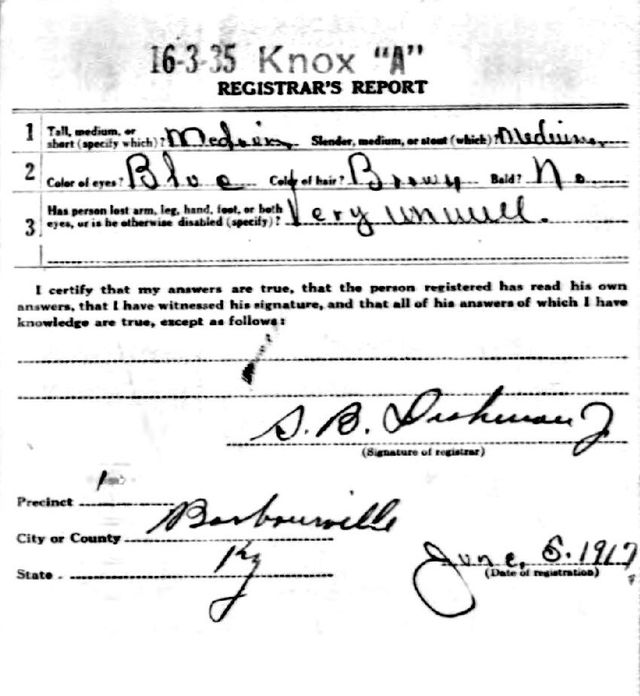 16-3-35 Knox "A"
REGISTRAR'S REPORT
1 Tall, medium, or short (specify which)? Medium Slender, medium, or stout (which) Medium
2 Color of eyes? Blue Color of hair? Brown Bald? No
3 Has person lost arm, leg, hand, foot, or both
eyes, or is he otherwise disabled (specify)? Very unwell.
I certify that my answers are true, that the person registered has read his own
answers, that I have witnessed his signature, and that all of his answers of which I have
knowledge are true, except as follows:
S. B. Dishman Jr
(Signature of registrar)
Precinct
City or County Barbourville
State Ky
June, 5. 1917
(Date of registration)